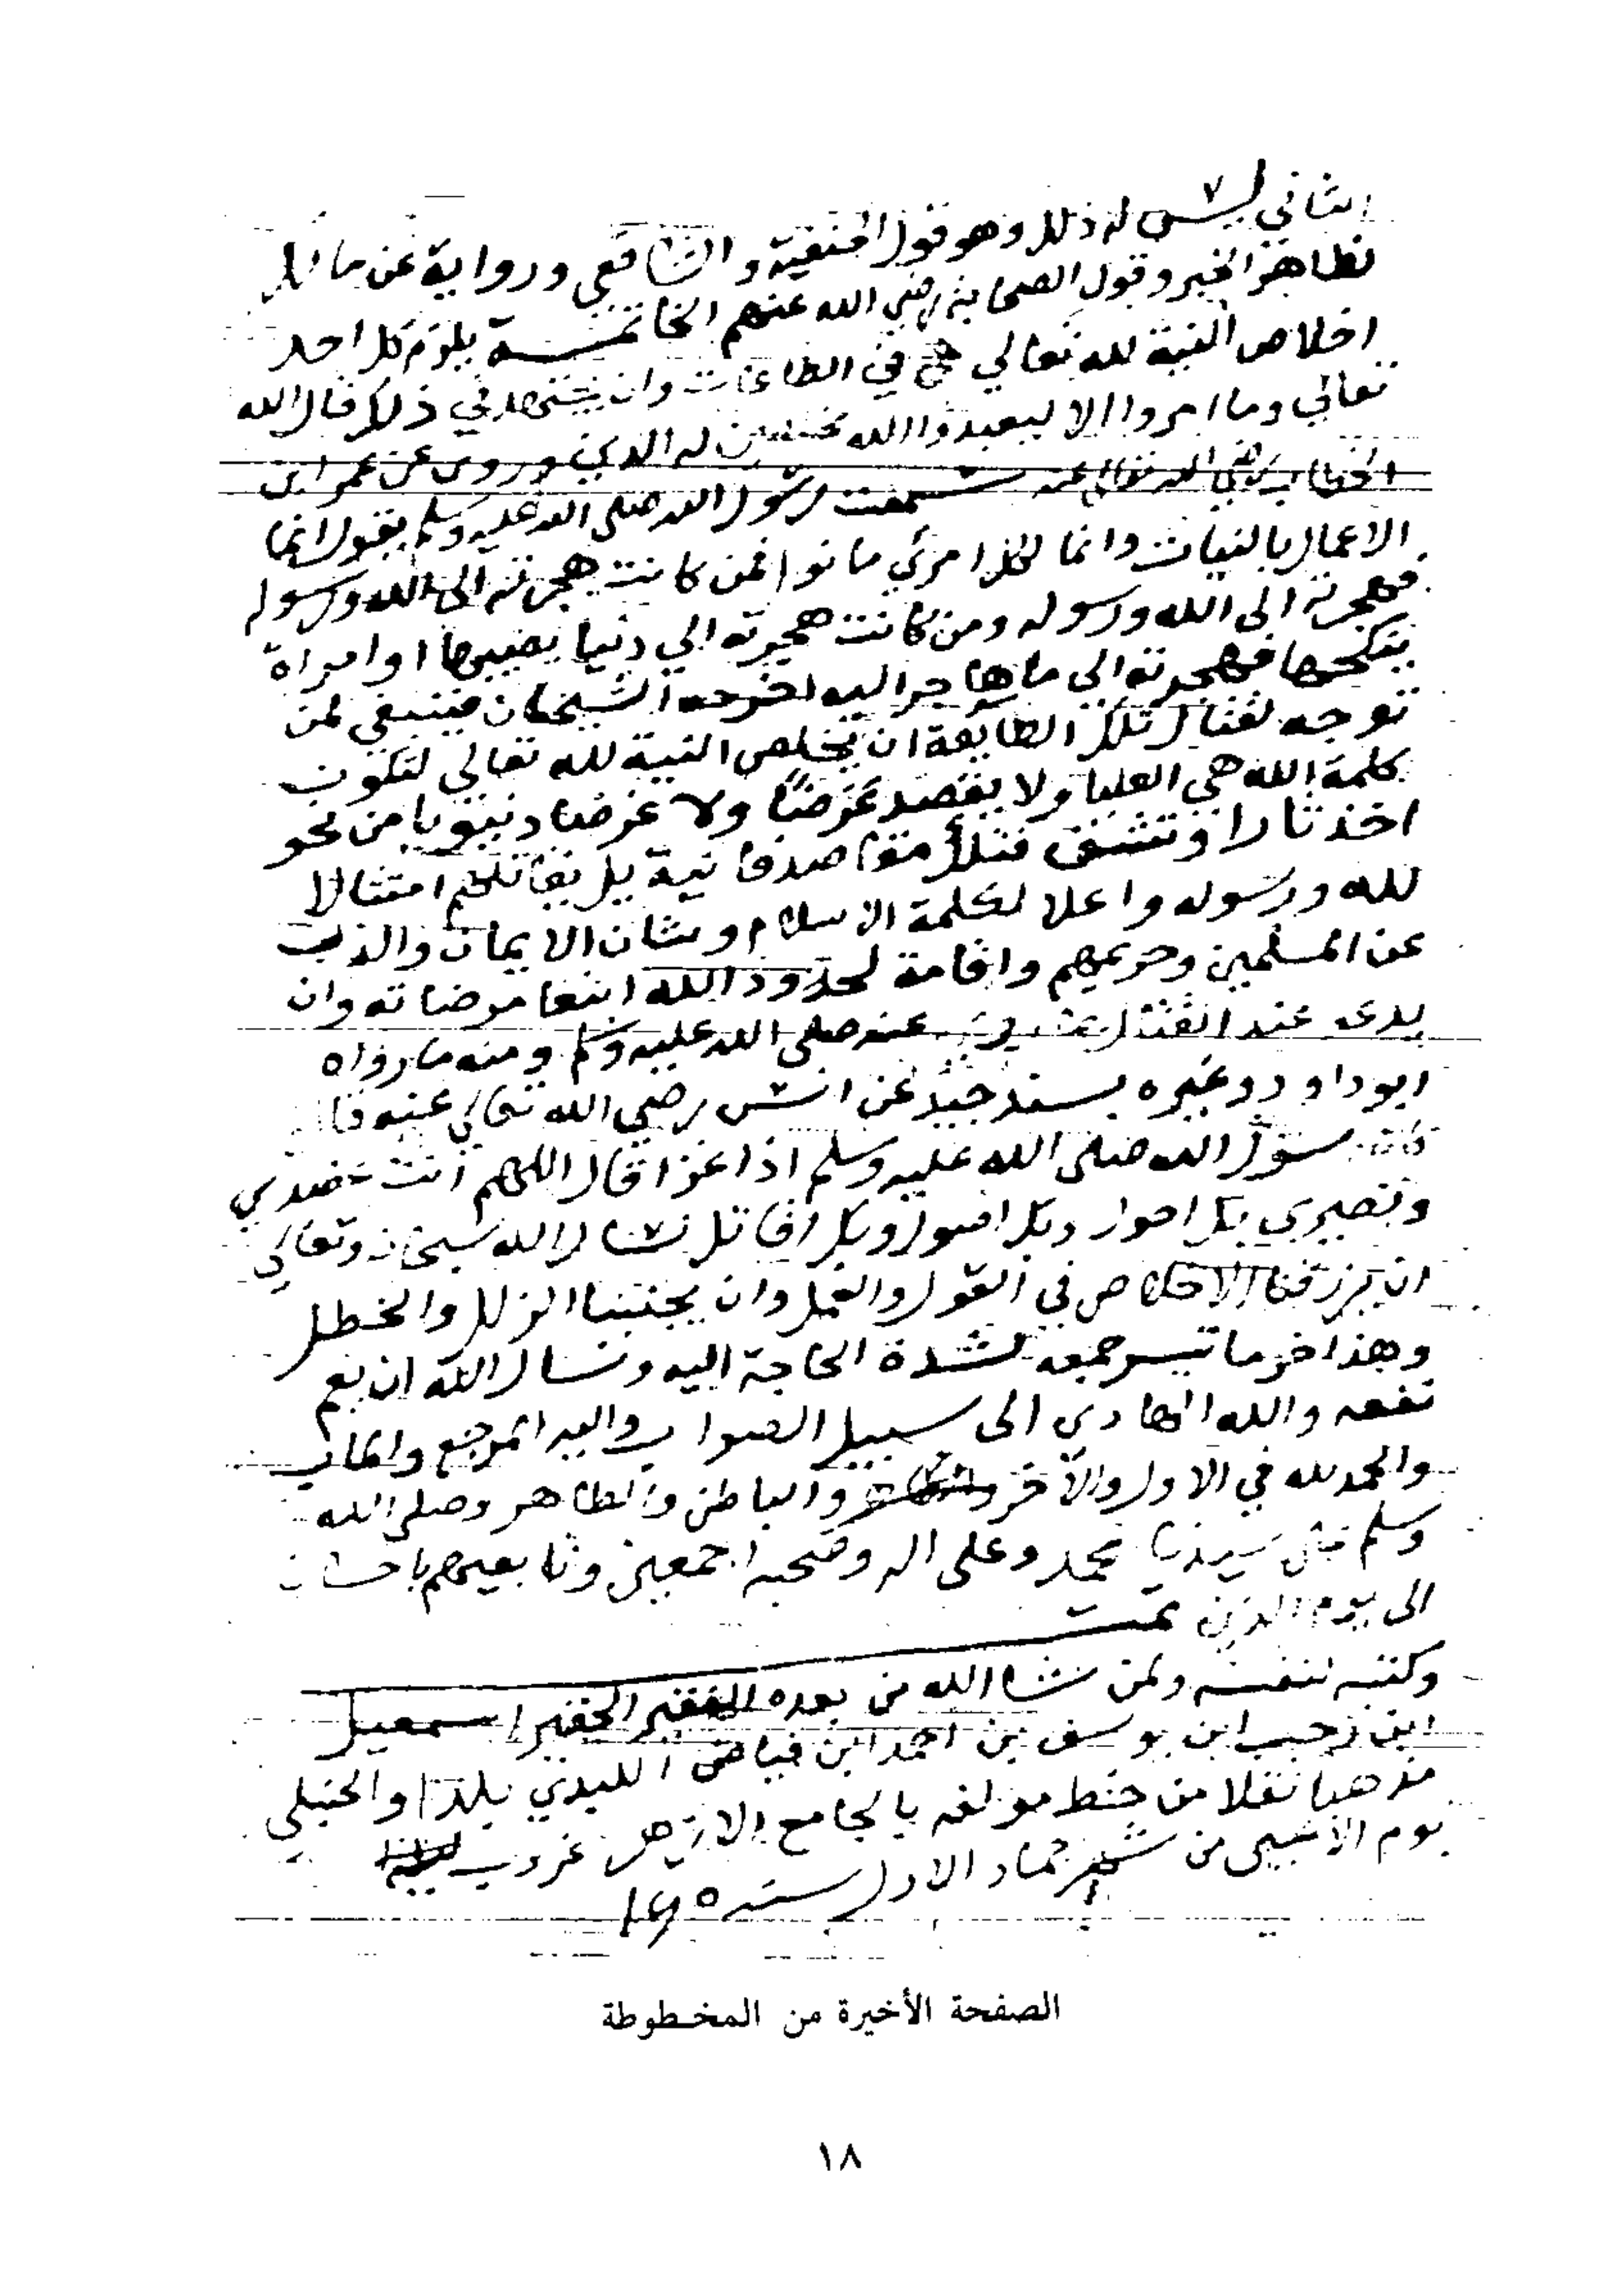 الثاني ليس له ذلك وهو قول الحنفية والشافعي ورواية عن مالك
لظاهر الخبر وقول الصحابة رضي الله عنهم الخاتمـــة يلزم كل احد
اخلاص النية لله تعالي في الطاعات وان يجتهد في ذلك قال الله
تعالي وما امروا الا ليعبدوا الله مخلصين له الدين وروى عن عمر ابن
الخطاب رضي الله تعالى عنه سمعت رسول الله صلى الله عليه وسلم يقول انما
الاعمال بالنيات وانما لكل امرئ ما نوا فمن كانت هجرته الى الله ورسوله
فهجرته الى الله ورسوله ومن كانت هجرته الي دنيا يصيبها او امراة
ينكحها فهجرته الى ما هاجر اليه اخرجه الشيخان فينبغي لمن
توجه لقتال تلك الطايفة ان يخلص النية لله تعالي لتكون
كلمة الله هي العليا ولا يقصد عرضا ولا غرضا دنيويا من نحو
اخذ ثار او تشف فتلك مقاصد فانية بل يقاتلهم امتثالا
لله ورسوله واعلا لكلمة الاسلام وشان الايمان والذب
عن المسلمين وحريمهم واقامة لحدود الله ابتغا مرضاته وان
يدعى عند القتال عنه صلى الله عليه وسلم ومنه ما رواه
ابو داود وغيره بسند جيد عن انس رضي الله تعالي عنه قال
كان رسول الله صلى الله عليه وسلم اذا غزا قال اللهم انت عضدي
ونصيرى بك احول وبك اصول وبك اقاتل نسال الله سبحانه وتعالي
ان يرزقنا الاخلاص في القول والعمل وان يجنبنا الزلل والخطل
وهذا اخر ما تيسر جمعه لشدة الحاجة اليه ونسال الله ان يعم
نفعه والله الهادي الى سبيل الصواب واليه المرجع والماب
والحمد لله في الاول والآخر والباطن والظاهر وصلى الله
وسلم على سيدنا محمد وعلى اله وصحبه اجمعين وتابعيهم باحسان
الى يوم الدين تمت
وكتبه لنفسه ولمن شا الله من بعده الفقير الحقير اسمعيل
ابن رجب ابن يوسف بن احمد ابن فياض اللبدي بلدا والحنبلي
مذهبا نقلا من خط مولفه بالجامع الازهر غروب
يوم الاثنين من شهر جماد الاول سنه
الصفحة الأخيرة من المخطوطة
١٨